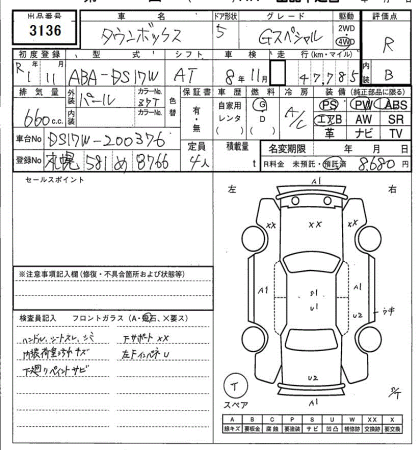 出品番号 車名 ドア形状 グレード 駆動 評価点
3136 タウンボックス 5 Gスペシャル 2WD 4WD R
初度登録 型式 シフト 車検 走行(km・マイル) 内装
R 1 11 ABA-DS17W AT 8年11月 47,785 B
排気量 外装 パール カラーNo. 色替 保証書 車歴 燃料 冷房 装備(純正部品に限る)
660 c.c. 内装 カラーNo. 有・無 自家用 レンタ G D A/C PS PW ABS
エアB AW SR
革 ナビ TV
車台No DS17W-200376 定員 積載量 名変期限 年 月 日
登録No 札幌 581 め 8766 4人 t R料金 未預託・預託済 8,680円
セールスポイント
左 右
A1
XX XX XX
A1 D1 U1 A1
U2
U2
A1
※注意事項記入欄(修復・不具合箇所および状態等)
検査員記入 フロントガラス(A・飛石、X要ス)
ハンドル、シートスレ、シミ 下サポートXX
内装荷室うちやキズ 左FインパネU
下廻りペイントサビ
T
スペア
A B C P S U W X XX
線キズ 要板金 腐蝕 要塗装 サビ 凹凸 補修跡 要交換